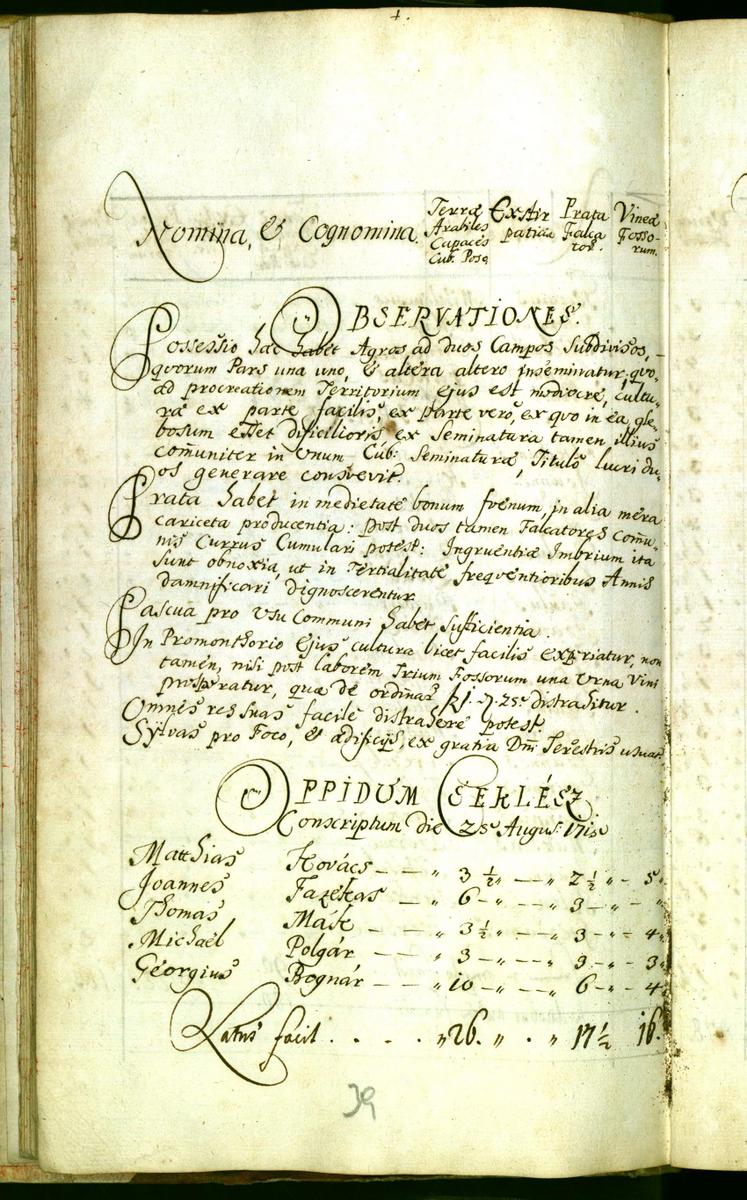 4.
Nomina, & Cognomina.
Terræ Arabiles Capaces Cub. Pos:
Exstirpatitiæ
Prata Falcator.
Vineæ Fossorum.
OBSERVATIONES.
Possessio hæc habet Agros ad duos Campos Subdivisos,
quorum Pars una uno, & altera altero inseminatur, quo-
ad procreationem Territorium ejus est mediocre, cultu-
ræ ex parte facilis, ex parte verò, ex quo in ea gle-
bosum esset dificilioris, ex Seminatura tamen illius
comuniter in Unum Cub: Seminaturæ, Titulô lucri du-
os generare consvevit.
Prata habet in medietate bonum fœnum, in alia mera
cariceta producentia: post duos tamen Falcatores comu-
nis Currus Cumulari potest: Ingruentiæ Imbrium ita
sunt obnoxia, ut in Tertialitate freqventioribus Annis
damnificari dignoscerentur.
Pascua pro Usu Communi habet Sufficientia.
In Promonthorio Ejus cultura licet facilis experiatur, non
tamen, nisi post laborem Trium Fossorum una Urna Vini
prosperatur, quæ de ordinar: d. 25 distrahitur.
Omnes res suas facilè distrahere potest.
Sylvas pro Foco, & ædificijs, ex gratia Dni Terestris usuat.
OPPIDUM CSEKLÉSZ
Conscriptum die 25 Augus: 1715
Matthias Kovács — — „ 3 ½ „ — „ 2 ½ „ - 5 „
Joannes Fazekas — „ 6 - „ — „ 3 — „ - „
Thomas Máté — — „ 3 ½ „ — „ 3 — „ - 4 „
Michaël Polgár — — „ 3 — „ — „ 3 — „ - 3 „
Georgius Bognár — — „ 10 — „ — „ 6 - „ - 4 „
Latus facit . . . . „ 26. „ . „ 17 ½ 16.
39